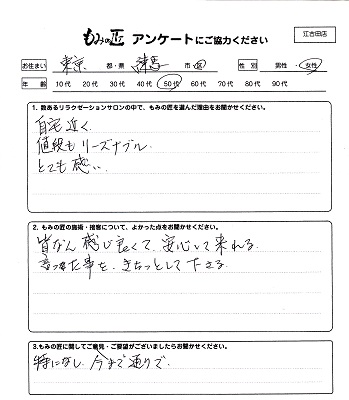 もみの匠 アンケートにご協力ください
江古田店
お住まい 東京 都・県 練馬 市・区 性別 男性・女性
年齢 10代 20代 30代 40代 50代 60代 70代 80代 90代
1. 数あるリラクゼーションサロンの中で、もみの匠を選んだ理由をお聞かせください。
自宅近く
値段もリーズナブル
とても
2. もみの匠の施術・接客について、よかった点をお聞かせください。
皆なん感じ良くて、安心して来れる。
事を、きちっとして下さる。
3.もみの匠に関してご意見・ご要望がございましたらお聞かせください。
特になし、今まで通りで。